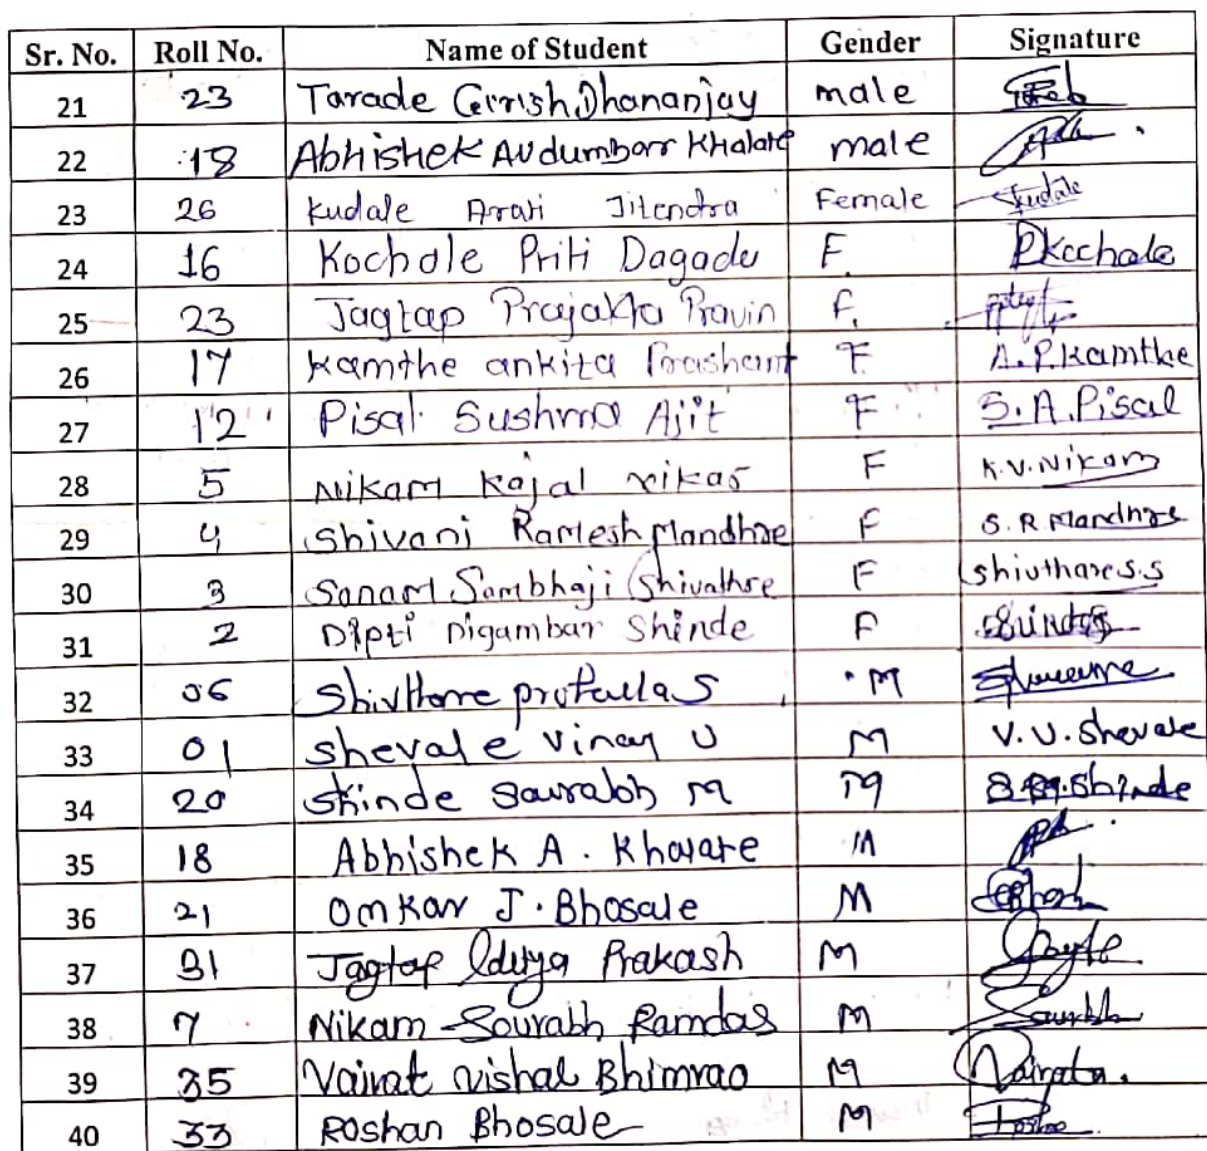 Sr. No. Roll No. Name of Student Gender Signature
21 23 Tarade Girish Dhananjay male
22 18 Abhishek Audumbarr Khalate male
23 26 Kudale Arati Jitendra Female Kudale
24 16 Kochale Priti Dagadu F. Pkochale
25 23 Jagtap Prajakta Pravin F.
26 17 Kamthe ankita Prashant F A.P.Kamthe
27 12 Pisal Sushma Ajit F S.A.Pisal
28 5 Nikam Kajal vikas F K.V.Nikam
29 4 Shivani Ramesh Mandhre F S.R Mandhre
30 3 Sanam Sambhaji Shivathre F Shivthare S.S
31 2 Dipti Digambar Shinde F
32 06 Shivthare S M
33 01 Shevale Vinay U M V.U.Shevale
34 20 Shinde Saurabh M M S.M.Shinde
35 18 Abhishek A. Khalate M
36 21 Omkar J. Bhosale M
37 31 Jagtap Prakash M
38 7 Nikam Sourabh Ramdas M
39 35 Vairat vishal Bhimrao M
40 33 Roshan Bhosale M